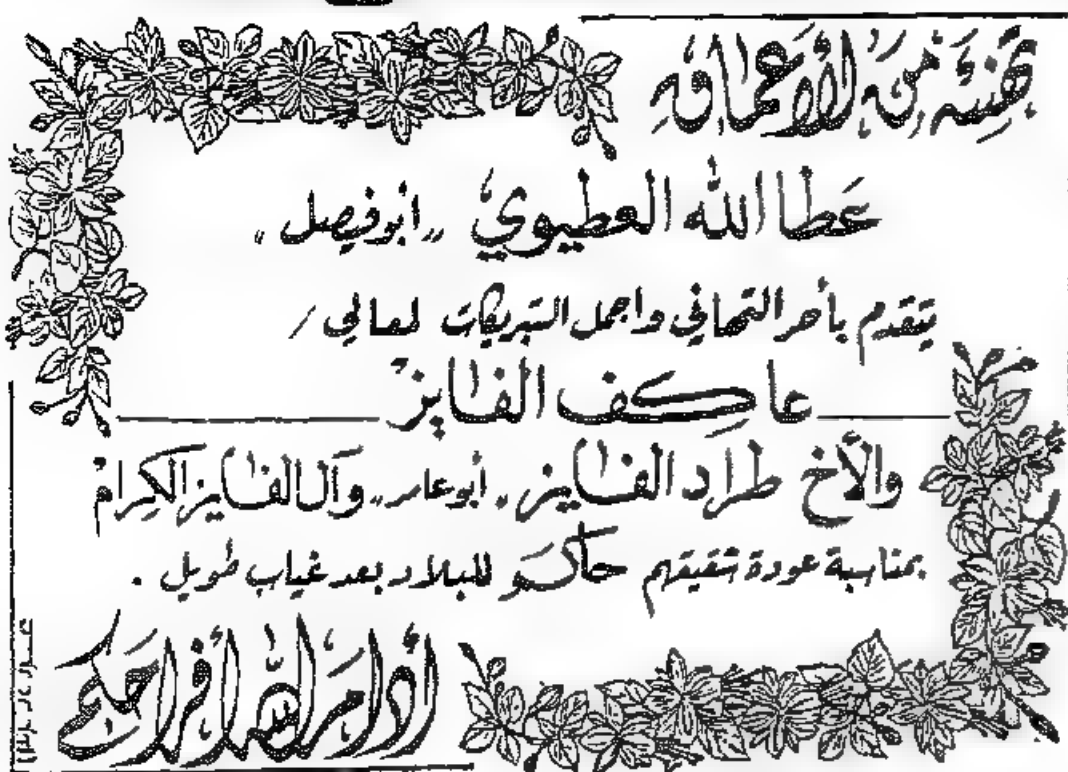 تهنئة من الأعماق
عطا الله العطيوي "أبو فيصل"
يتقدم بأحر التهاني واجمل التبريكات لمعالي /
عاكف الفايز
والأخ طراد الفايز "أبو عامر" وآل الفايز الكرام
بمناسبة عودة شقيقهم حاكم للبلاد بعد غياب طويل .
أدام الله أفراحكم